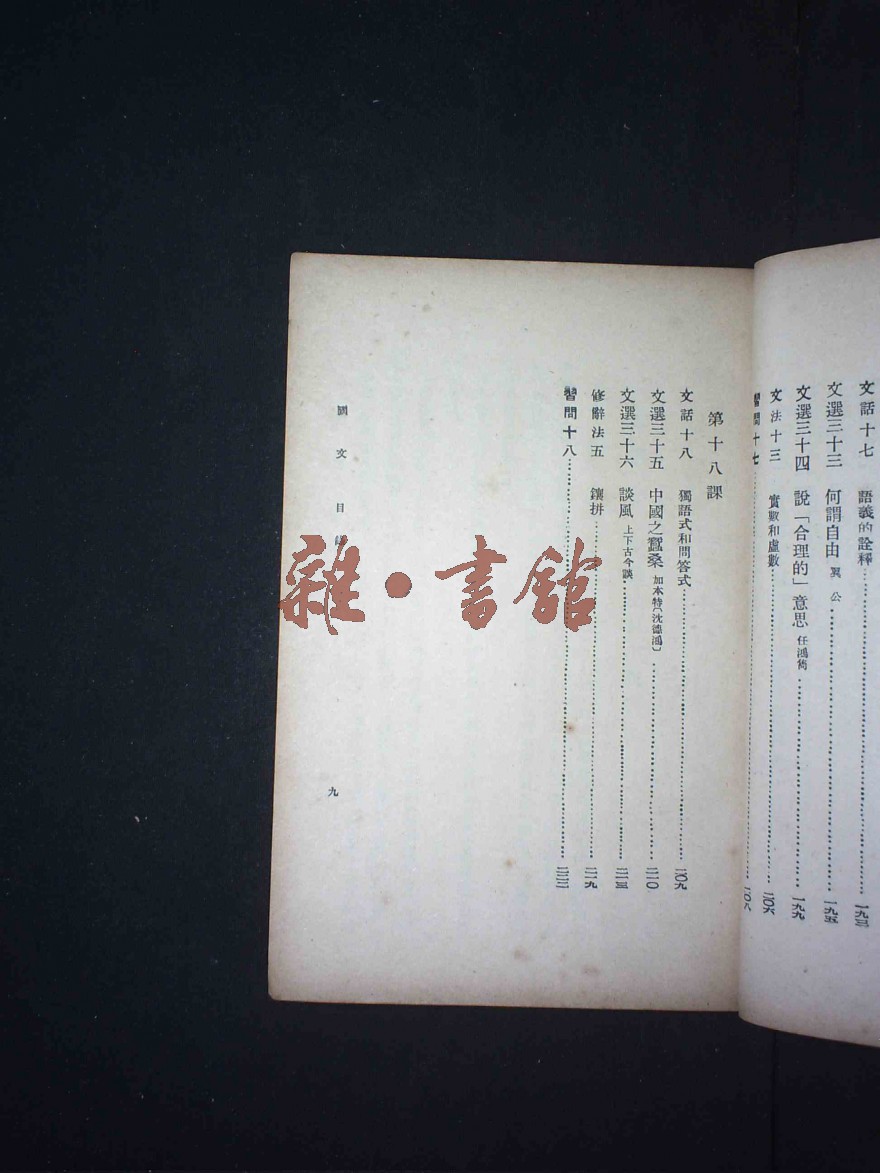 文話十七 語義的詮釋……一九三
文選三十三 何謂自由 翼公……一九五
文選三十四 說「合理的」意思 任鴻雋……一九九
文法十三 實數和虛數……二〇六
習問十七……二〇八
第十八課
文話十八 獨語式和問答式……二〇九
文選三十五 中國之蠶桑 加本特(沈德鴻)……二一〇
文選三十六 談風 上下古今談……二一三
修辭法五 鑲拼……二一九
習問十八……二二二
國文 目
九
雜·書舘